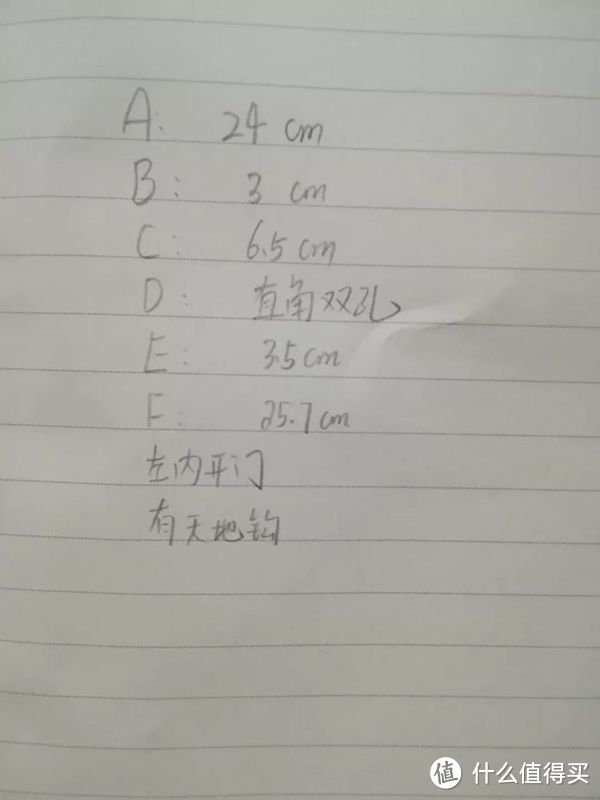 A: 24 cm
B: 3 cm
C: 6.5 cm
D: 直角双孔
E: 3.5 cm
F: 25.7 cm
左内开门
有天地钩
值 什么值得买